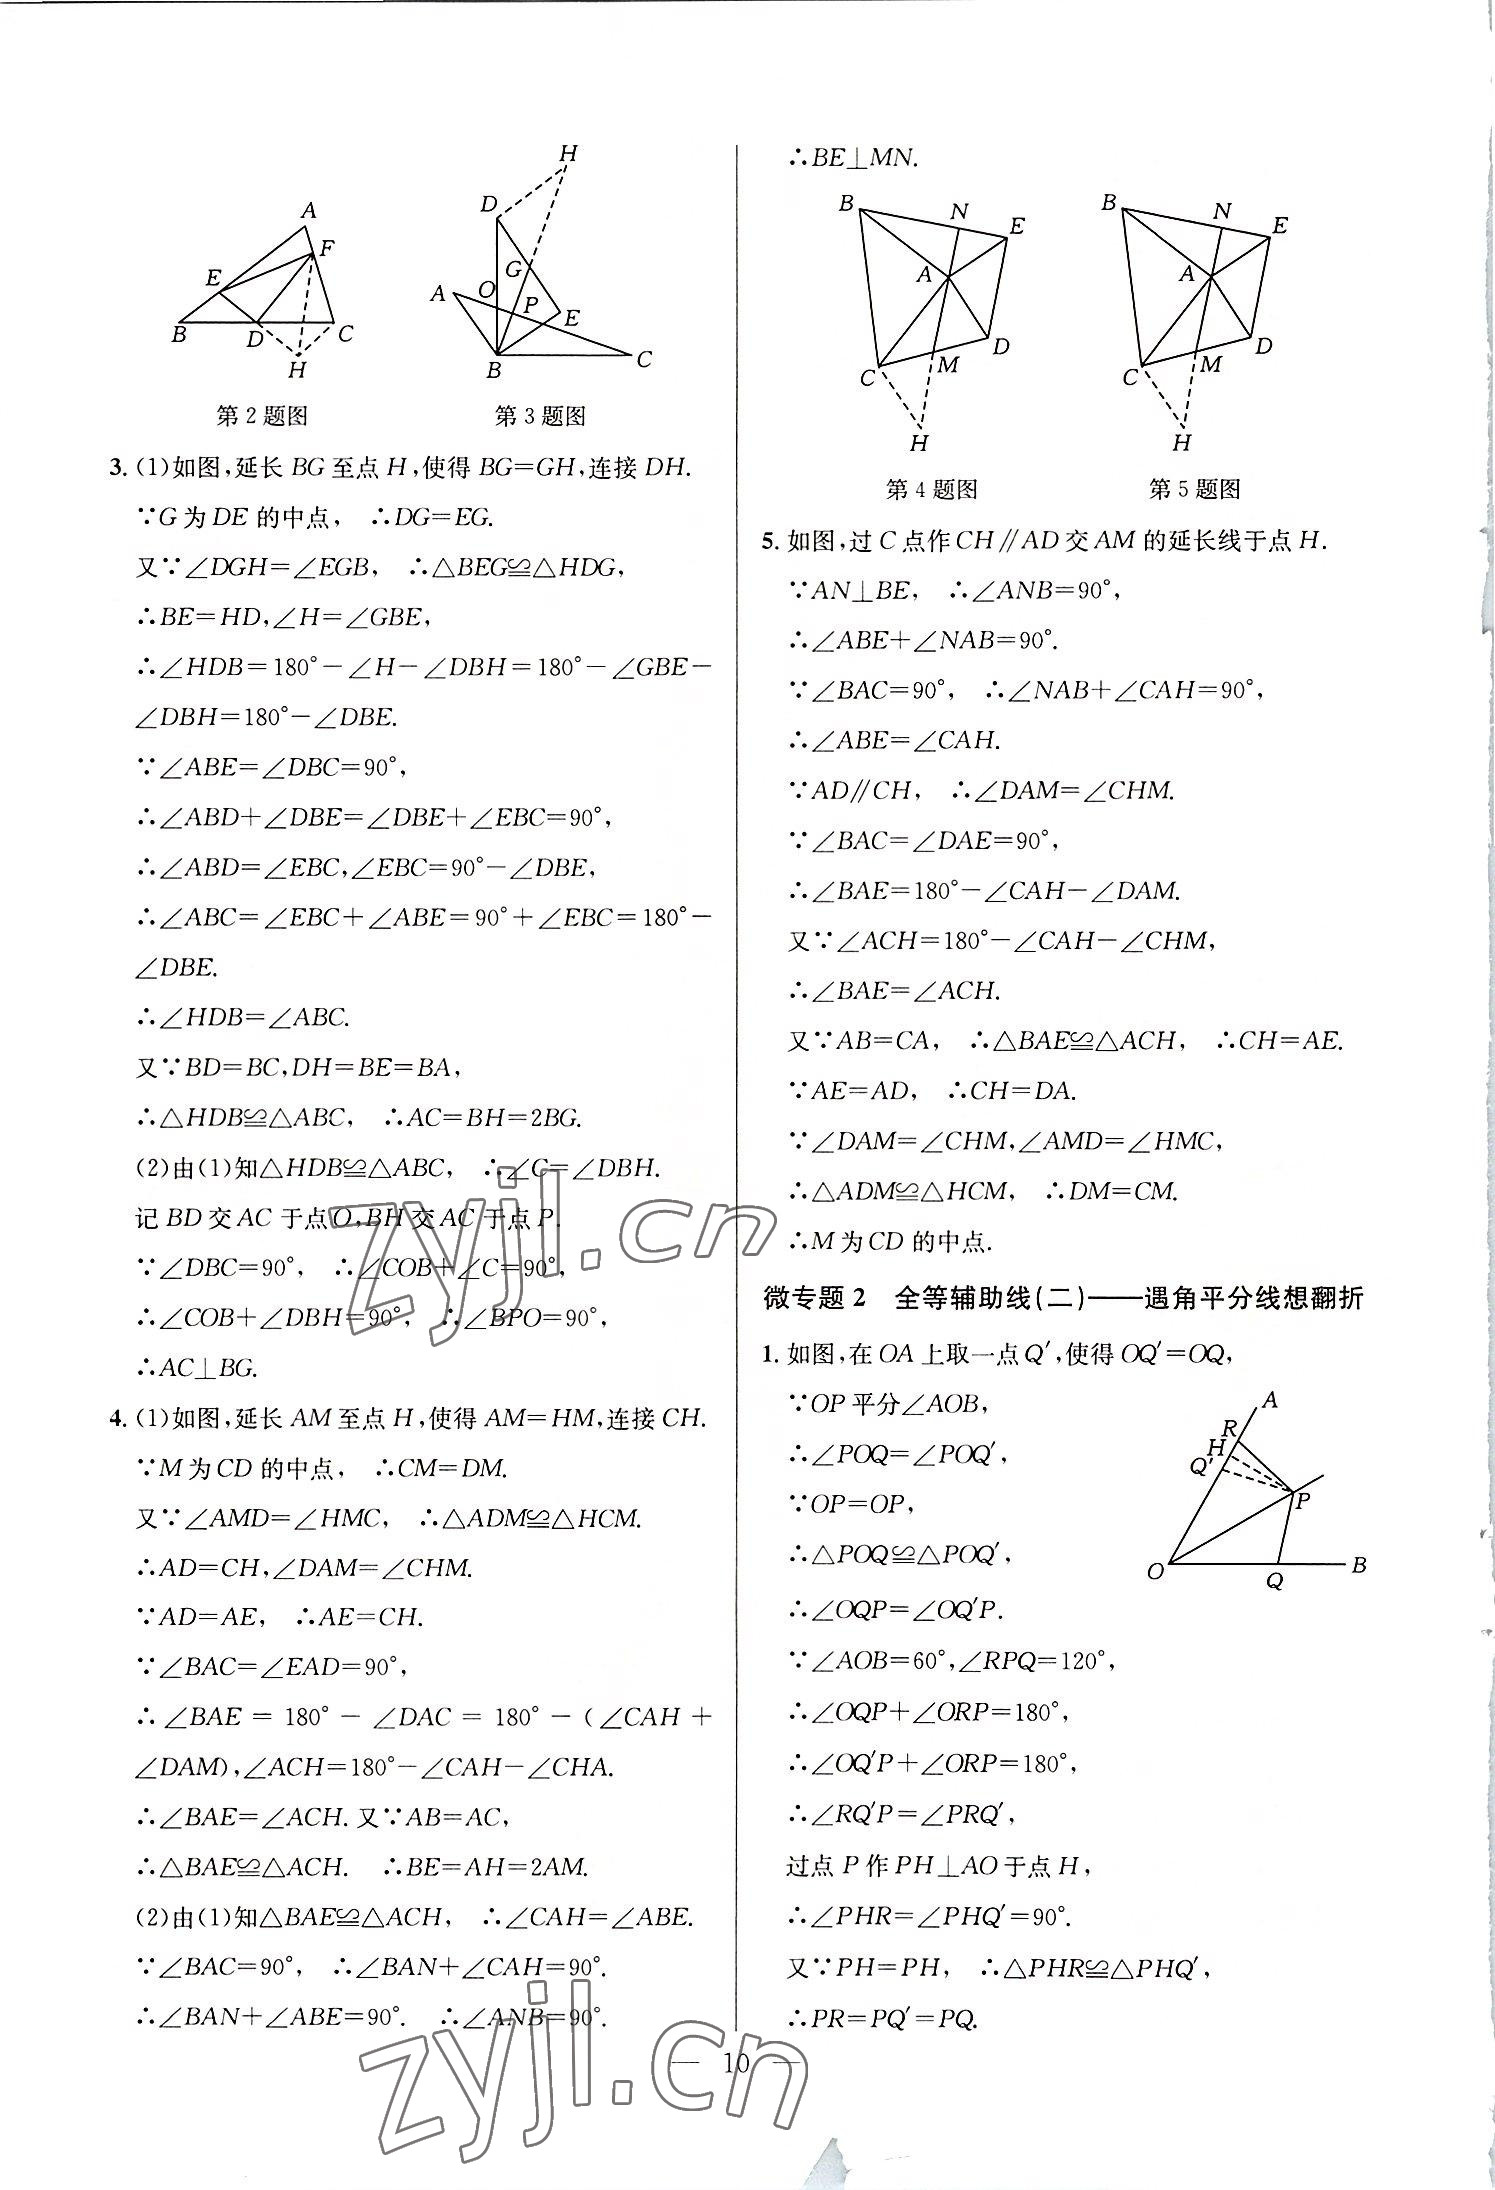 H
D
A
F
G
E
A
O
P
E
B
D
C
C
H
B
第2题图
第3题图
3. (1)如图,延长BG至点H,使得BG=GH,连接DH.
∵G为DE的中点, ∴DG=EG.
又∵∠DGH=∠EGB, ∴△BEG≌△HDG,
∴BE=HD,∠H=∠GBE,
∴∠HDB=180°-∠H-∠DBH=180°-∠GBE-
∠DBH=180°-∠DBE.
∵∠ABE=∠DBC=90°,
∴∠ABD+∠DBE=∠DBE+∠EBC=90°,
∴∠ABD=∠EBC,∠EBC=90°-∠DBE,
∴∠ABC=∠EBC+∠ABE=90°+∠EBC=180°-
∠DBE.
∴∠HDB=∠ABC.
又∵BD=BC,DH=BE=BA,
∴△HDB≌△ABC, ∴AC=BH=2BG.
(2)由(1)知△HDB≌△ABC, ∴∠C=∠DBH.
记BD交AC于点O,BH交AC于点P.
∵∠DBC=90°, ∴∠COB+∠C=90°,
∴∠COB+∠DBH=90°, ∴∠BPO=90°,
∴AC⊥BG.
4. (1)如图,延长AM至点H,使得AM=HM,连接CH.
∵M为CD的中点, ∴CM=DM.
又∵∠AMD=∠HMC, ∴△ADM≌△HCM.
∴AD=CH,∠DAM=∠CHM.
∵AD=AE, ∴AE=CH.
∵∠BAC=∠EAD=90°,
∴∠BAE=180°-∠DAC=180°-(∠CAH+
∠DAM),∠ACH=180°-∠CAH-∠CHA.
∴∠BAE=∠ACH.又∵AB=AC,
∴△BAE≌△ACH. ∴BE=AH=2AM.
(2)由(1)知△BAE≌△ACH, ∴∠CAH=∠ABE.
∵∠BAC=90°, ∴∠BAN+∠CAH=90°.
∴∠BAN+∠ABE=90°. ∴∠ANB=90°.
∴BE⊥MN.
B
N
E
A
D
C
M
H
B
N
E
A
D
C
M
H
第4题图
第5题图
5. 如图,过C点作CH∥AD交AM的延长线于点H.
∵AN⊥BE, ∴∠ANB=90°,
∴∠ABE+∠NAB=90°.
∵∠BAC=90°, ∴∠NAB+∠CAH=90°,
∴∠ABE=∠CAH.
∵AD∥CH, ∴∠DAM=∠CHM.
∵∠BAC=∠DAE=90°,
∴∠BAE=180°-∠CAH-∠DAM.
又∵∠ACH=180°-∠CAH-∠CHM,
∴∠BAE=∠ACH.
又∵AB=CA, ∴△BAE≌△ACH, ∴CH=AE.
∵AE=AD, ∴CH=DA.
∵∠DAM=∠CHM,∠AMD=∠HMC,
∴△ADM≌△HCM, ∴DM=CM.
∴M为CD的中点.
微专题2 全等辅助线(二)——遇角平分线想翻折
1. 如图,在OA上取一点Q′,使得OQ′=OQ,
∵OP平分∠AOB,
∴∠POQ=∠POQ′,
∵OP=OP,
∴△POQ≌△POQ′,
∴∠OQP=∠OQ′P.
∵∠AOB=60°,∠RPQ=120°,
∴∠OQP+∠ORP=180°,
∴∠OQ′P+∠ORP=180°,
∴∠RQ′P=∠PRQ′,
过点P作PH⊥AO于点H,
∴∠PHR=∠PHQ′=90°.
又∵PH=PH, ∴△PHR≌△PHQ′,
∴PR=PQ′=PQ.
A
R
H
Q′
P
O
Q
B
zyjl.cn
zyjl.cn
— 10 —